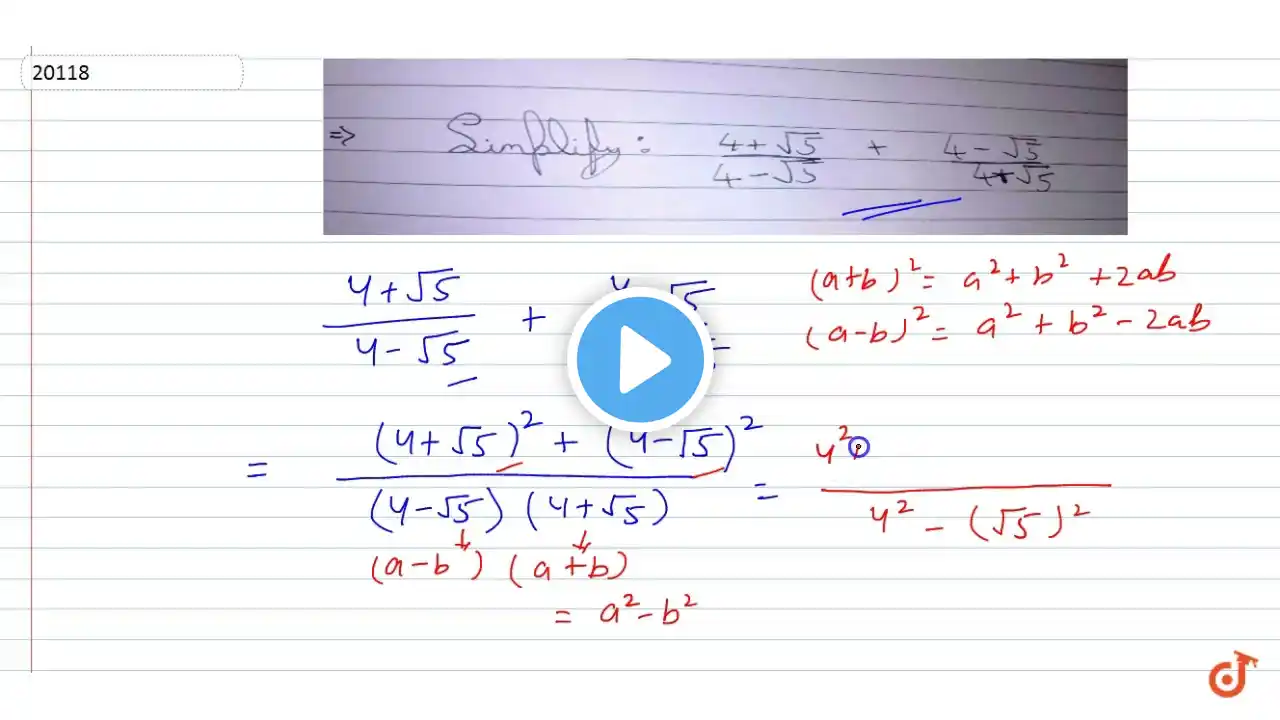 20118
⇒ Simplify: (4+√5)/(4-√5) + (4-√5)/(4+√5)
(4+√5)/(4-√5) +
(a+b)² = a²+b²+2ab
(a-b)² = a²+b²-2ab
= ((4+√5)² + (4-√5)²)/((4-√5)(4+√5)) = 4²/(4²-(√5)²)
(a-b) (a+b)
= a²-b²